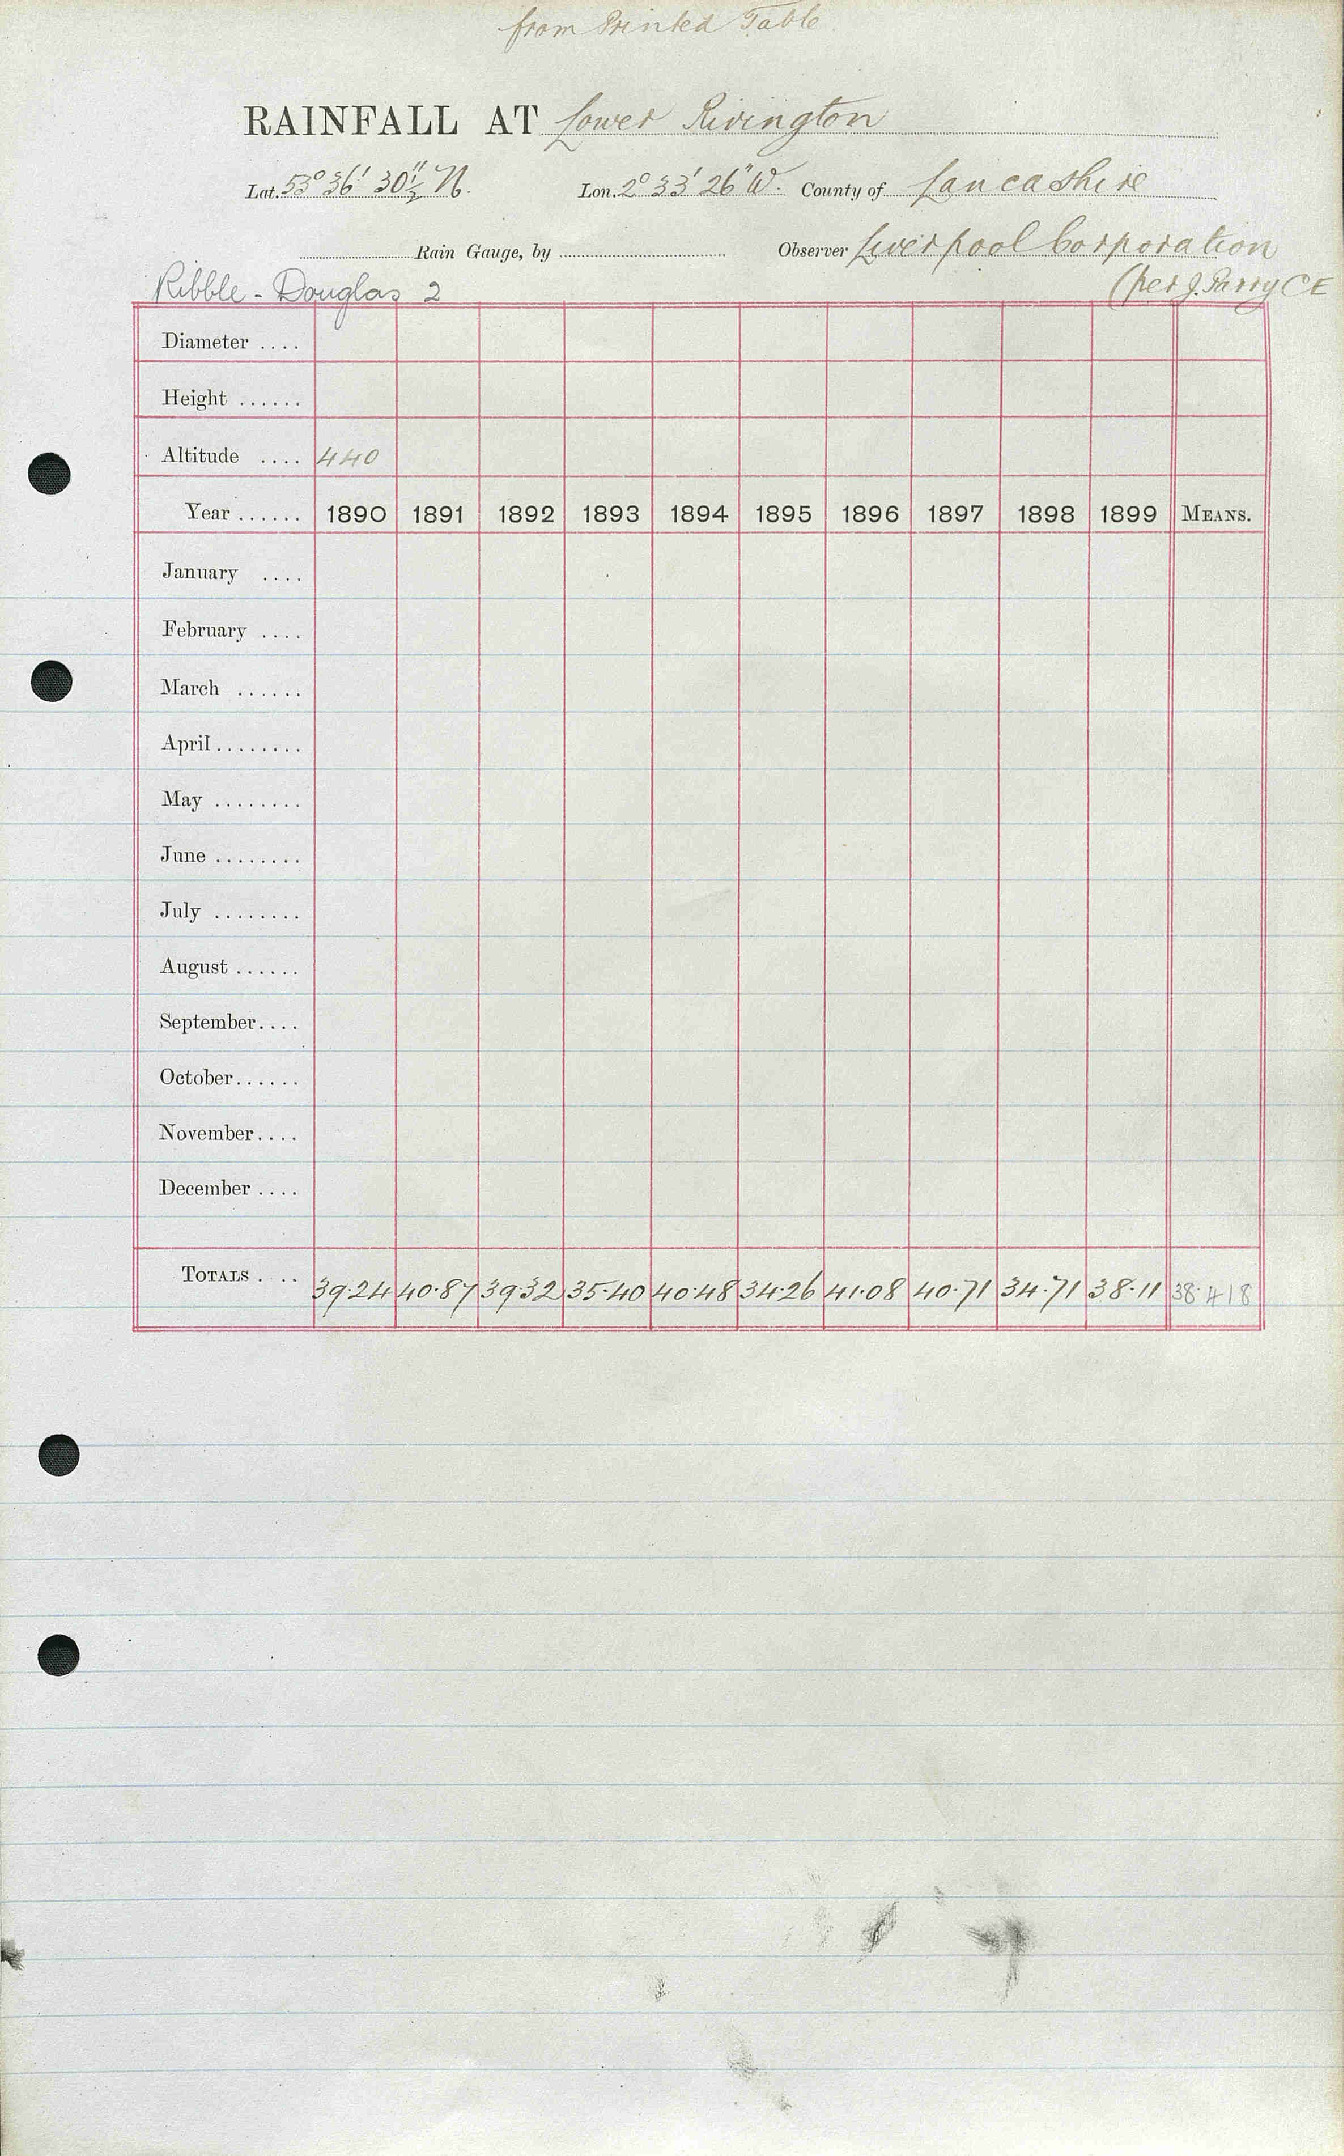 from Printed Table
RAINFALL AT Lower Rivington
Lat. 53° 36' 30½" N. Lon. 2° 33' 26" W. County of Lancashire
Rain Gauge, by Observer Liverpool Corporation
Ribble - Douglas 2 (per J. Parry CE
Diameter ....
Height ......
Altitude .... 440
Year ...... 1890 1891 1892 1893 1894 1895 1896 1897 1898 1899 MEANS.
January ....
February ....
March ......
April ........
May ........
June ........
July ........
August ......
September....
October......
November....
December ....
TOTALS . .. 39.24 40.87 39.32 35.40 40.48 34.26 41.08 40.71 34.71 38.11 38.418